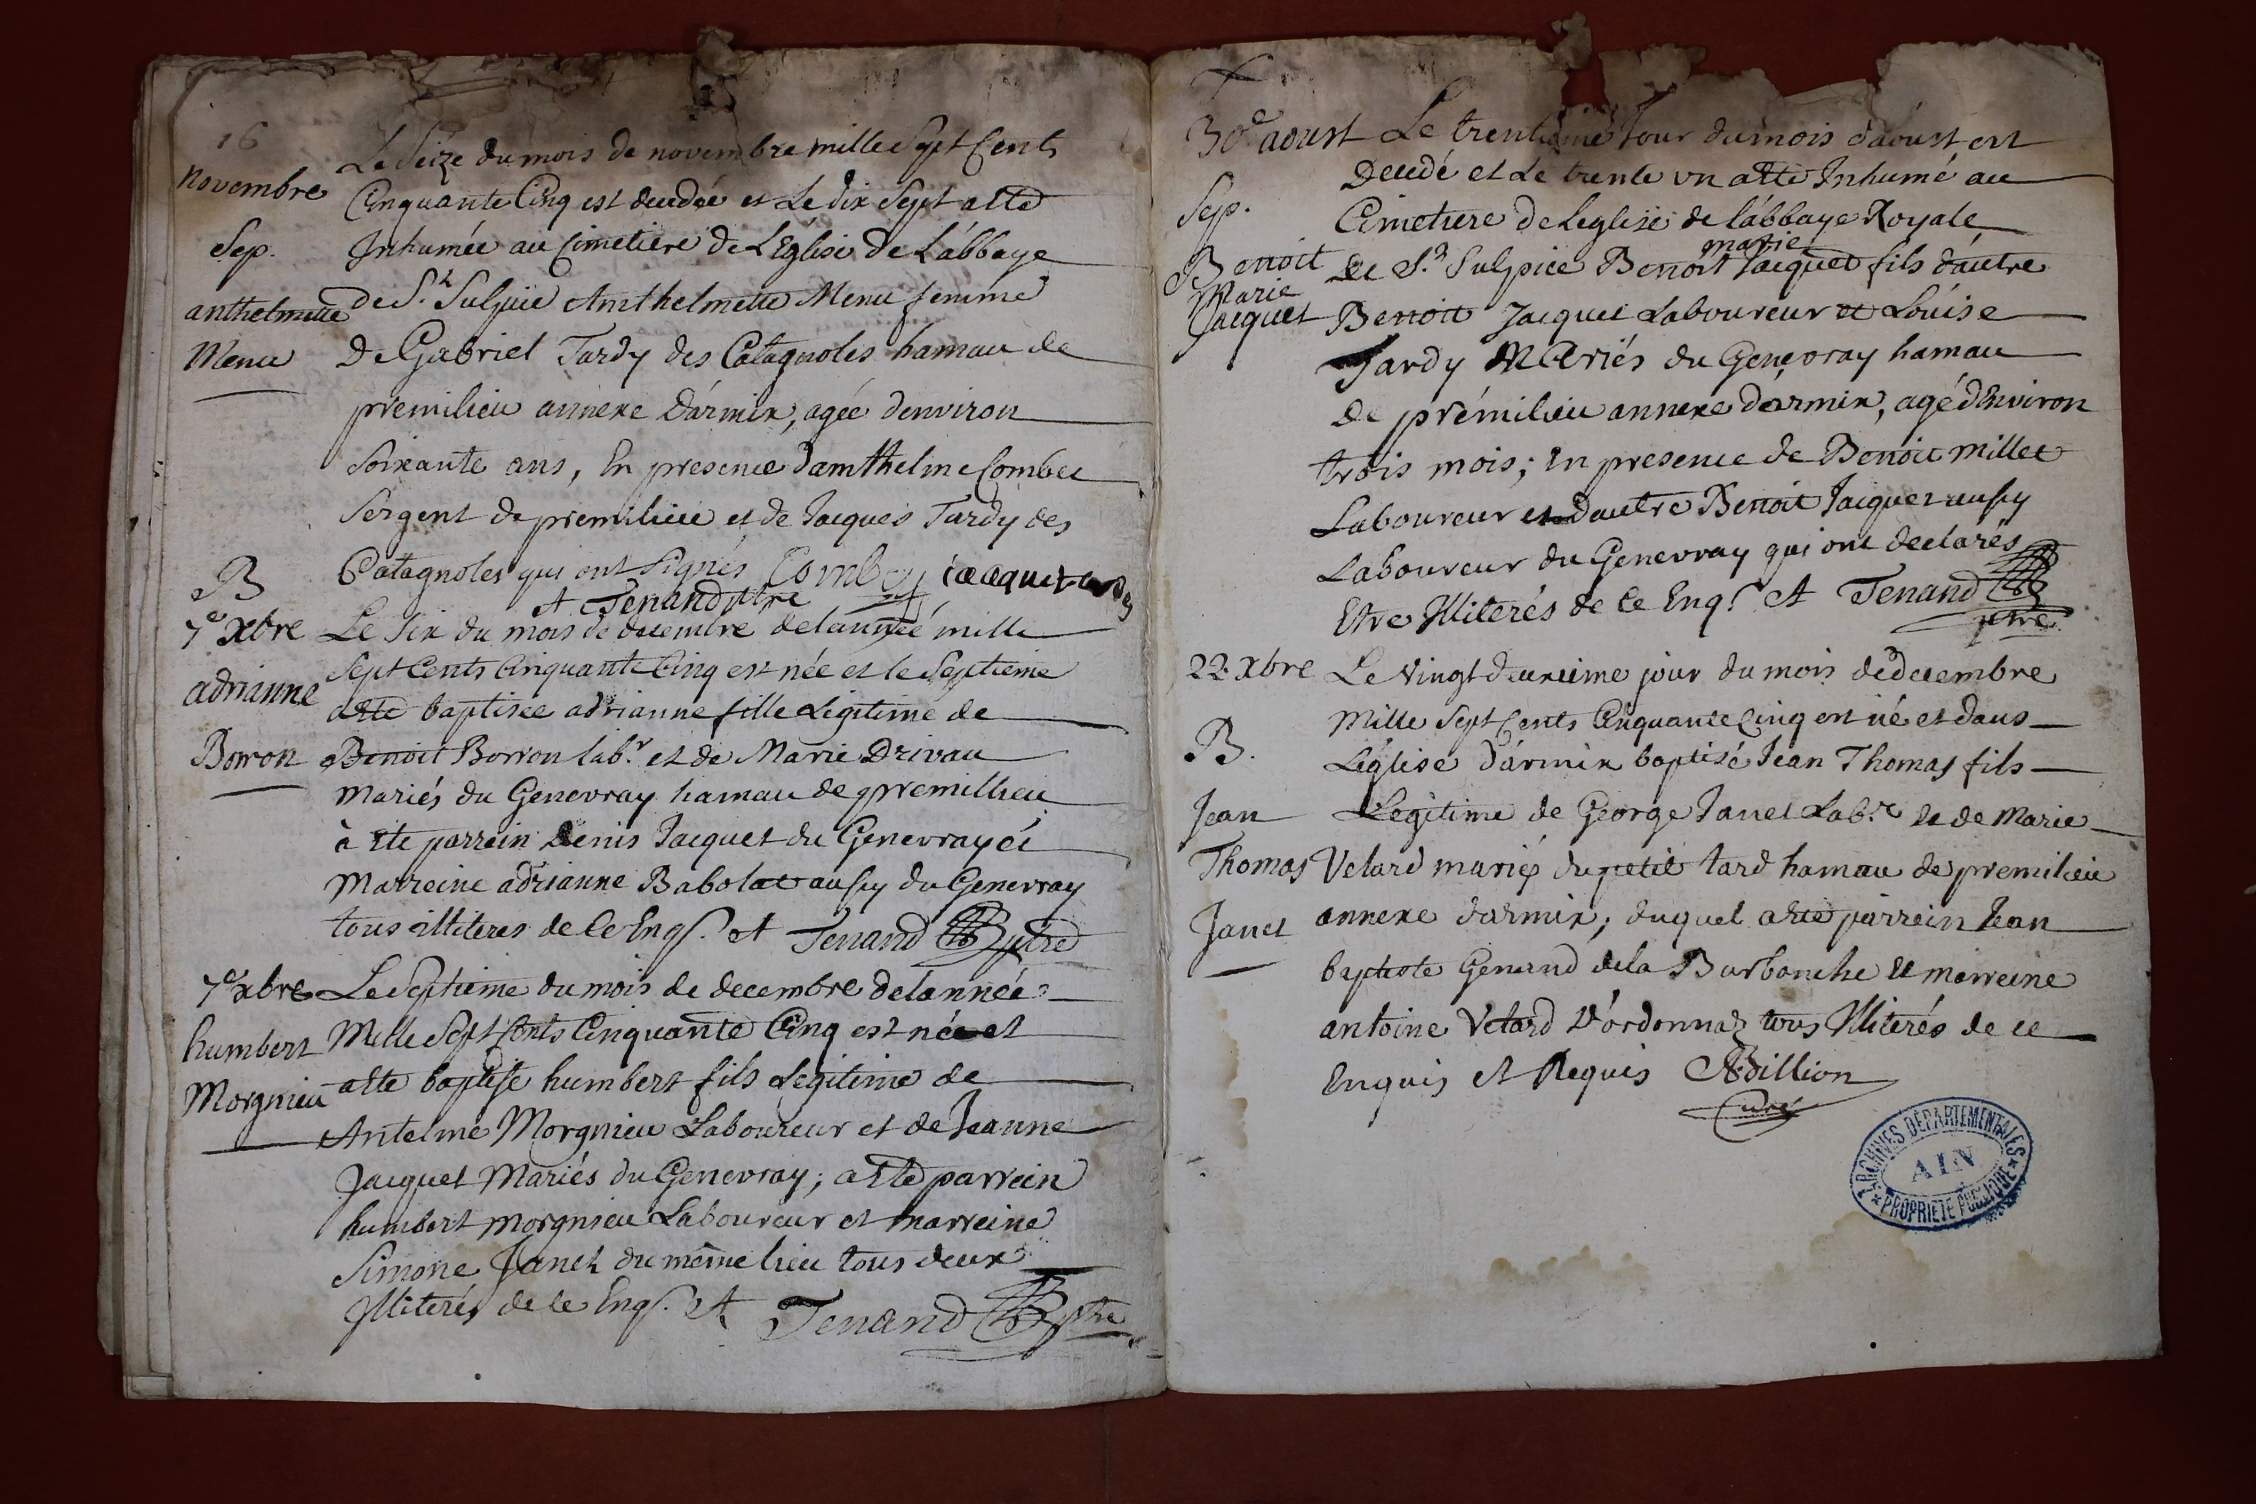 16
novembre
Sep.
anthelmette
Menu
Le Seize du mois de novembre mille Sept Cents
Cinquante Cinq est decedée et Le dix Sept a ete
Inhumée au Cimetiere de L'Eglise de L'abbaye
de St Sulpice Anthelmette Menu femme
De Gabriel Tardy des Catagnoles hamau de
premilieu annexe d'armix, agée d'environ
Soixante ans, En presence d'amthelme Combet
Sergent de premilieu et de Jacques Tardy des
Catagnoles qui ont Signés Combet jacques tardy
et Tenand ptre
B
7e Xbre
adrianne
Borron
Le Six du mois de decembre de lannéé mille
Sept Cents Cinquante Cinq est née et le Septieme
a ete baptisee adrianne fille Legitime de
Benoit Borron lab.r et de Marie Drivau
mariés du Genevray hamau de premillieu
à ete parrein Denis Jacquet du Genevray et
Marreine adrianne Babolat aussy du Genevray
tous illiteres de ce Enqs. et Tenand ptre
7e xbre
humbert
Morgnieu
Le Septieme du mois de decembre de lannéé
Mille Sept Cents Cinquante Cinq est née et
a ete baptise humbert fils Legitime de
Antelme Morgnieu Laboureur et de Jeanne
Jacquet Mariés du Genevray; a ete parrein
humbert morgnieu Laboureur et marreine
Simone Janet du même lieu tous deux
Illiterés de ce Enqs. et Tenand ptre
30e aoust
Sep.
Benoit
Marie
Jacquet
Le trentieme Jour du mois d'aoust est
Decedé et Le trente un a ete Inhumé au
Cimetiere de Leglise de l'abbaye Royale
marie
de St Sulpice Benoit Jacquet fils d'autre
Benoit Jacquet Laboureur et Loüise
Tardy Mariés du Genevray hamau
de prémilieu annexe d'armix, agé d'Environ
trois mois; En presence de Benoit millet
Laboureur et d'autre Benoit Jacquet aussy
Laboureur du Genevray qui ont declarés
Etre Illiterés de ce Enqs et Tenand
ptre
22 Xbre
B.
Jean
Thomas
Janet
Le Vingt deuxieme jour du mois de decembre
Mille Sept Cents Cinquante Cinq est né et dans
L'église d'armix baptisé Jean Thomas fils
Legitime de George Janet Lab.r et de Marie
Velard mariés du petit tard hamau de premilieu
annexe d'armix; duquel a ete parrein Jean
baptiste Genand de la Burbanche et marreine
antoine Velard d'ordonnaz tous Illiterés de ce
Enquis et Requis Billion
Curé
ARCHIVES DEPARTEMENTALES
AIN
PROPRIETE PUBLIQUE